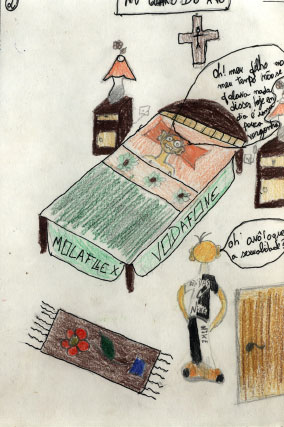 NO QUARTO DO AVÔ
Oh! meu filho no
meu tempo não se
falava nada
disso, hoje em
dia é
pouca
vergonha
MOLAFLEX
VODAFONE
oh! avô! o que é
a sexualidade?
NIKE